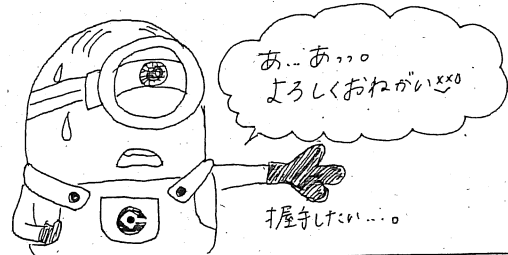 あ…あっっ。
よろしくおねがい××。
握手したい…。